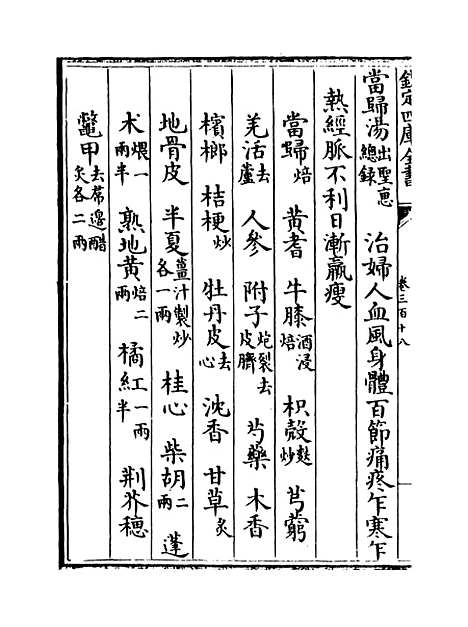 欽定四庫全書 卷三百十八
當歸湯出聖惠總錄 治婦人血風身體百節痛疼乍寒乍
熱經脈不利日漸羸瘦
當歸焙 黃耆 牛膝酒浸焙 枳殼麩炒 芎藭
羌活去蘆 人參 附子炮裂去皮臍 芍藥 木香
檳榔 桔梗炒 牡丹皮去心 沈香 甘草炙
地骨皮 半夏薑汁製炒各一兩 桂心 柴胡二兩 蓬
术煨一兩半 熟地黃焙二兩 橘紅一兩半 荆芥穗
鼈甲去席邊醋炙各二兩